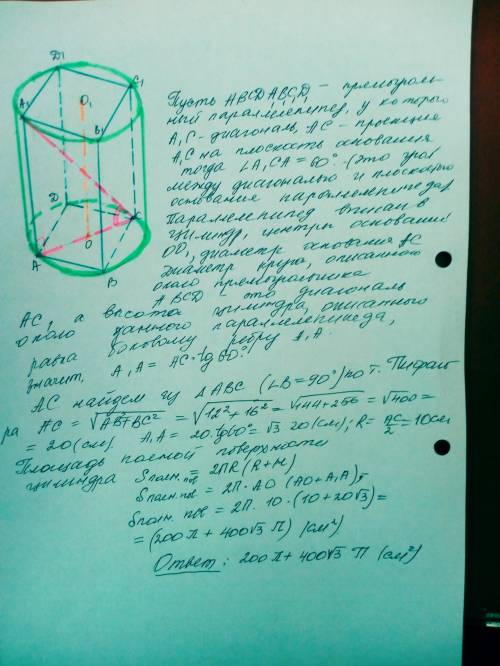 D₁
C₁
A₁
O₁
B₁
D
C
A
O
B
Пусть ABCDA₁B₁C₁D₁ – прямоуголь-
ный параллелепипед, у которого
A₁C – диагональ, AC – проекция
A₁C на плоскость основания
тогда ∠A₁CA = 60° (это угол
между диагональю и плоскостью
основания параллелепипеда)
Параллелепипед вписан в
цилиндр, центры оснований
OO₁, диаметр основания AC
диаметр круга, описанного
около прямоугольника
ABCD – это диагональ
AC, а высота цилиндра, описанного
около данного параллелепипеда,
равна боковому ребру A₁A.
значит, A₁A = AC·tg60°
AC найдем из ΔABC (∠B=90°) по т. Пифаго
ра AC = √AB²+BC² = √12²+16² = √144+256 = √400 =
= 20 (см). A₁A = 20·tg60° = √3 20 (см); R = AC/2 = 10см
Площадь полной поверхности
цилиндра Sполн. = 2ПR(R+H)
Sполн. пов = 2П·AO (AO+A₁A);
Sполн. пов = 2П·10·(10+20√3) =
= (200π + 400√3 П) (см²)
Ответ: 200π + 400√3 П (см²)